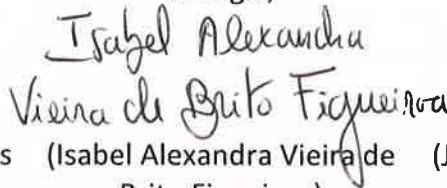 Isabel Alexandra
Vieira de Brito Figueiroa
s (Isabel Alexandra Vieira de (J